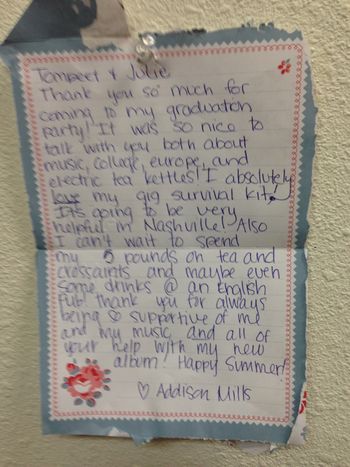 Tompeet & Julie
Thank you so much for
coming to my graduation
party! It was so nice to
talk with you both about
music, college, europe, and
electric tea kettles! I absolutely
love my gig survival kit!
It's going to be very
helpful in Nashville! Also
I can't wait to spend
my 5 pounds on tea and
croissaints and maybe even
some drinks @ an English
Pub! Thank you for always
being so supportive of me
and my music and all of
your help with my new
album! Happy Summer!
♡ Addison Mills